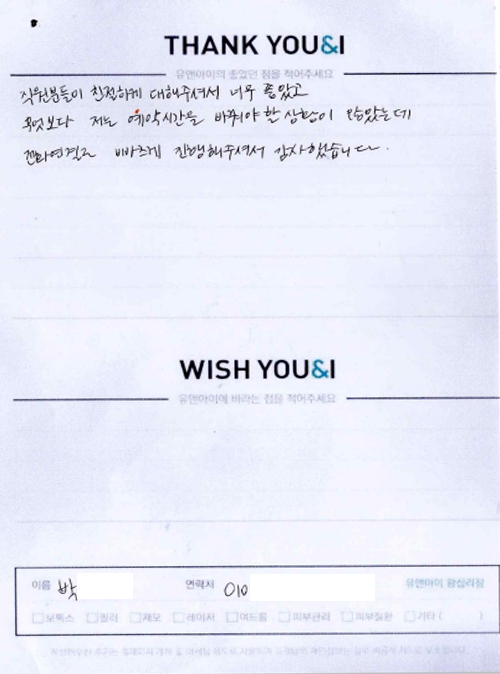 THANK YOU&I
유앤아이의 좋았던 점을 적어주세요
직원분들이 친절하게 대해주셔서 너무 좋았고
무엇보다 저는 예약시간을 바꿔야 할 상황이 많았는데
전화연결로 빠르게 진행해주셔서 감사했습니다.
WISH YOU&I
유앤아이에 바라는 점을 적어주세요
이름 박 연락처 010 유앤아이 왕십리점
보톡스 필러 제모 레이저 여드름 피부관리 피부질환 기타 ( )